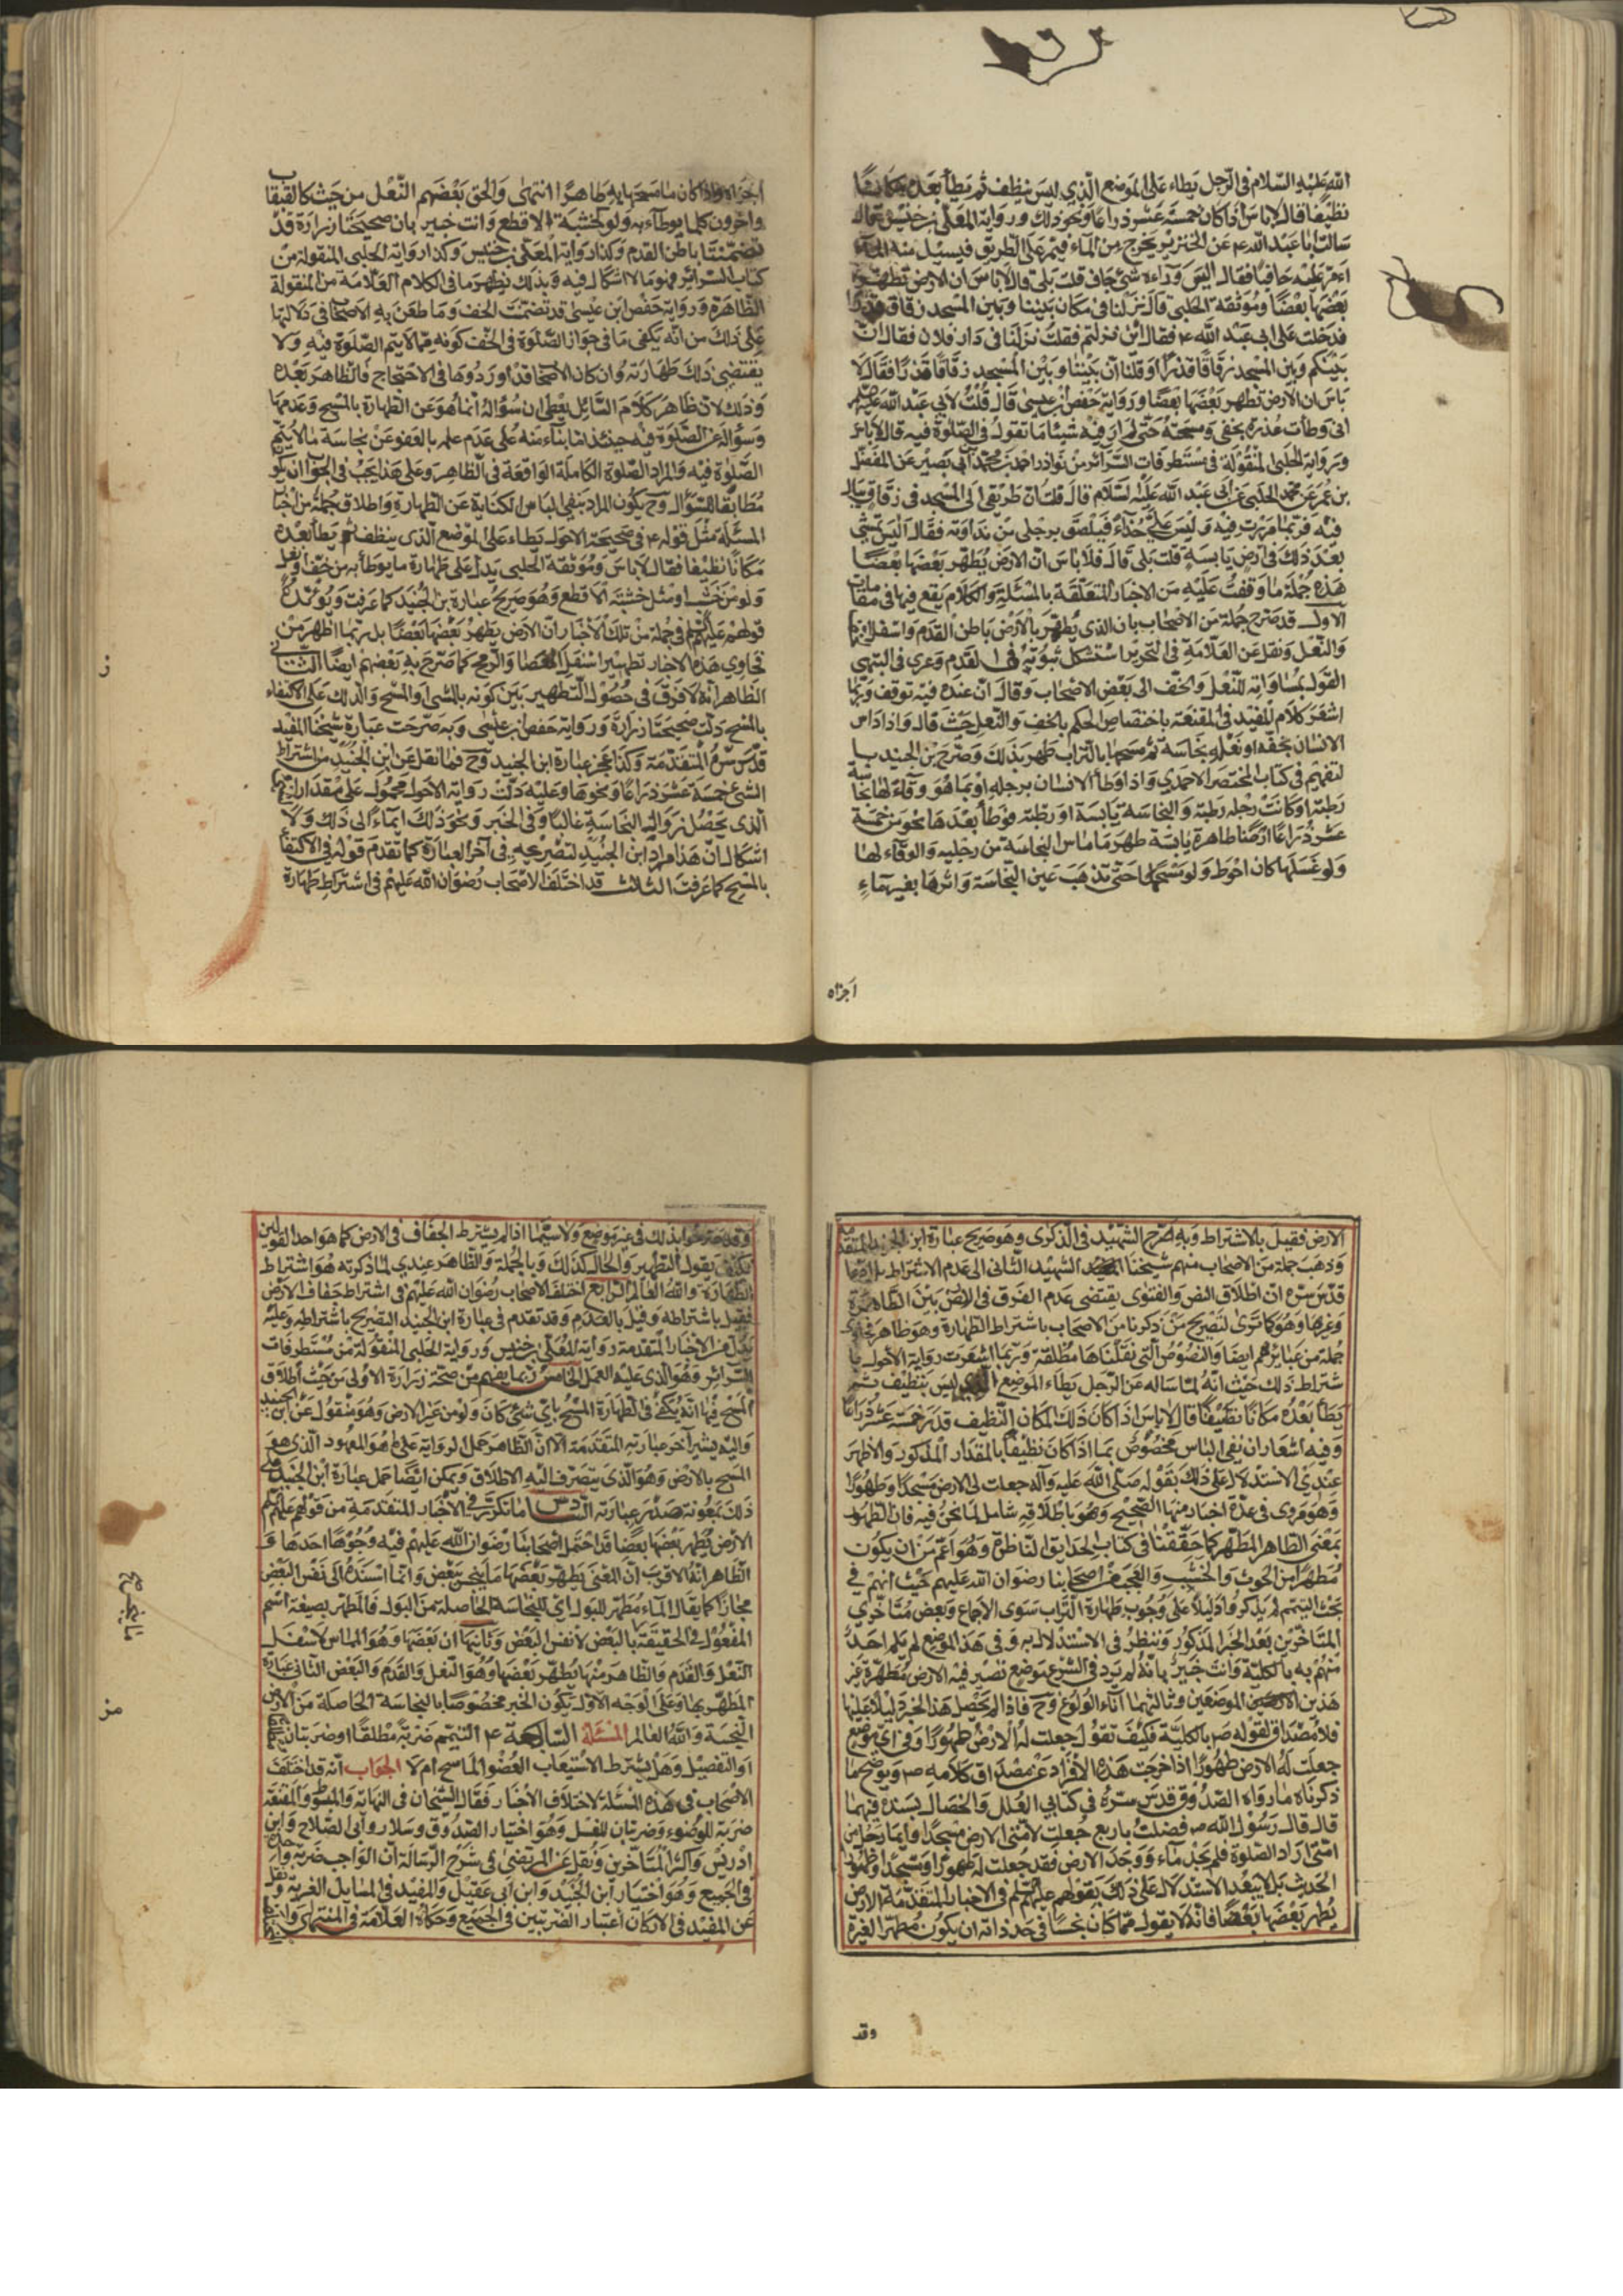 الله عليه السلام في الرجل يطاء على الموضع الذي ليس بنظيف ثم يطأ بعده مكانًا
نظيفًا فقال لا باس اذا كان خمسة عشر ذراعًا ونحو ذلك ورواية المعلى بن خنيس قال
سالت ابا عبد الله ع عن الخنزير يخرج من الماء فيمر على الطريق فيسيل منه الماء
امر عليه حافيًا فقال اليس وراءه شئ جاف قلت بلى قال لا باس ان الارض تطهر
بعضها بعضًا وموثقة الحلبي قال نزلنا في مكان بيننا وبين المسجد زقاق قذر
فدخلت على ابي عبد الله ع فقال اين نزلتم فقلت نزلنا في دار فلان فقال ان
بينكم وبين المسجد زقاقًا قذرًا او قلنا ان بيننا وبين المسجد زقاقًا قذرًا فقال لا
باس ان الارض تطهر بعضها بعضًا ورواية حفص بن عيسى قال قلت لابي عبد الله عليه
اني وطأت عذرة بخفي ومسحته حتى لم ار فيه شيئًا ما تقول في الصلوة فيه قال لا باس
ورواية الحلبي المنقولة في مستطرفات السرائر من نوادر احمد بن محمد ابي نصير عن المفضل
بن عمر عن محمد الحلبي عن ابي عبد الله عليه السلام قال قلت ان طريقي الى المسجد في زقاق يبال
فيه فربما مررت فيه وليس علي حذاء فيلصق برجلي من نداوته فقال اليس تمشي
بعد ذلك في ارض يابسة قلت بلى قال فلا باس ان الارض يطهر بعضها بعضًا
هذه جملة ما وقفت عليه من الاخبار المتعلقة بالمسئلة والكلام يقع فيها في مقامات
الاول قد صرح جملة من الاصحاب بان الذي يطهر بالارض باطن القدم واسفل الخف
والنعل ونقل عن العلامة في التحرير استشكل ثبوته في القدم وعرى في المنتهى
القول بمساواته للنعل والخف الى بعض الاصحاب وقال ان عنده فيه توقف وربما
اشعر كلام المفيد في المقنعة باختصاص الحكم بالخف والنعل حيث قال واذا داس
الانسان بخفه او نعله نجاسة ثم مسحهما بالتراب طهر بذلك وصرح بن الجنيد
في كتاب المختصر الاحمدي واذا وطأ الانسان برجله او بما هو وقاء لها نجاسة
رطبة او كانت رجله رطبة والنجاسة يابسة او رطبة فوطأ بعدها نحو من خمسة
عشر ذراعًا ارضًا طاهرة يابسة طهر ما ماس النجاسة من رجليه والوقاء لها
ولو غسلها كان احوط ولو مسحها حتى تذهب عين النجاسة واثرها بغير ماء
اجزاه
اجزاه واذا كان ما مسحها به طاهرًا انتهى والحق بعضهم النعل من خشب كالقبقاب
واخرون كلما يوطاء به ولو لخشبة الاقطع وانت خبير بان صحيحتا زرارة قد
تضمنتا باطن القدم وكذا رواية المعلى بن خنيس وكذا رواية الحلبي المنقولة من
كتاب السرائر فهو مما لا اشكال فيه وبذلك يظهر ما في كلام العلامة من المنقولة
الظاهرة ورواية حفص بن عيسى قد تضمنت الخف وما طعن به الاصحاب في دلالتها
على ذلك من انه يكفي ما في جواز الصلوة في الخف كونه مما لا يتم الصلوة فيه ولا
يقتضي ذلك طهارته وان كان الاصحاب قد اوردوها في الاحتجاج فالظاهر بعده
وذلك لان ظاهر كلام السائل يعطي ان سؤاله انما هو عن الطهارة بالمسح وعدمها
وسؤاله عن الصلوة فيه حينئذ انما بناء منه على عدم علمه بالعفو عن نجاسة ما لا يتم
الصلوة فيه والمراد الصلوة الكاملة الواقعة في الظاهر وعلى هذا يجب في الجواب ان يكون
مطابقًا للسؤال وح يكون المراد بنفي الباس الكناية عن الطهارة واطلاق جملة من اخبار
المسئلة مثل قوله ع في صحيحة الاحول يطاء على الموضع الذي ينظف ثم يطأ بعده
مكانًا نظيفًا فقال لا باس وموثقة الحلبي يدل على طهارة ما يوطأ به من خف او نعل
ولو من خشب او مثل خشبة الاقطع وهو صريح عبارة بن الجنيد كما عرفت ويؤيده
قولهم عليهم في جملة من تلك الاخبار ان الارض يطهر بعضها بعضًا بل ربما اظهر من
فحاوي هذه الاخبار تطهير اسفل العصا والرمح كما صرح به بعضهم ايضًا الثاني
الظاهر انه لا فرق في حصول التطهير بين كونه بالمشي او المسح والدلك على الاكتفاء
بالمسح دلت صحيحتا زرارة ورواية حفص بن عيسى وبه صرحت عبارة شيخنا المفيد
قدس سره المتقدمة وكذا عجز عبارة ابن الجنيد وح فما نقل عن ابن الجنيد من اشتراط
الشئ خمسة عشر ذراعًا ونحوها وعليه دلت رواية الاحول محمول على مقدار
الذي يحصل زوال النجاسة غالبًا وفي الخبر ونحو ذلك ايماء الى ذلك ولا
اشكال ان هذا مراد ابن الجنيد لتصريحه في آخر العبارة كما تقدم قوله في الاكتفاء
بالمسح كما عرفت الثالث قد اختلف الاصحاب رضوان الله عليهم في اشتراط طهارة
ز
الارض فقيل بالاشتراط وبه صرح الشهيد في الذكرى وهو صريح عبارة ابن الجنيد المتقدمة
وذهب جملة من الاصحاب منهم شيخنا الشهيد الثاني الى عدم الاشتراط
قدس سره ان اطلاق النص والفتوى يقتضي عدم الفرق في الارض بين الطاهرة
وغيرها وهو كما ترى لتصريح من ذكرنا من الاصحاب باشتراط الطهارة وهو ظاهر
جملة من عبائرهم ايضا والنصوص التي نقلناها مطلقة وربما اشعرت رواية الاحول با
شتراط ذلك حيث انه لما ساله عن الرجل يطاء الموضع الذي ليس بنظيف ثم
يطأ بعده مكانًا نظيفًا قال لا باس اذا كان ذلك المكان النظيف قدر خمسة عشر ذراعًا
وفيه اشعار ان نفي الباس مخصوص بما اذا كان نظيفا بالمقدار المذكور والاظهر
عندي الاستدلال على ذلك بقوله صلى الله عليه وآله جعلت لي الارض مسجدًا وطهورًا
وهو مروي في عدة اخبار منها الصحيح وهو باطلاقه شامل لما نحن فيه فان الطهور
بمعنى الطاهر المطهر كما حققنا في كتاب الحدايق الناظرة وهو اعم من ان يكون
مطهرًا من الحدث والخبث والعجب من اصحابنا رضوان الله عليهم حيث انهم في
بحث التيمم لم يذكروا دليلًا على وجوب طهارة التراب سوى الاجماع وبعض متأخري
المتاخرين بعد الخبر المذكور وينظر في الاستدلال به وفي هذا الموضع لم يلم احد
منهم به بالكلية وانت خبير بانه لم يرد في الشرع موضع تصير فيه الارض مطهرة غير
هذين الموضعين وثالثهما اناء الولوغ وح فاذا لم يحصل هذا الخبر دليلًا عليها
فلا مصداق لقوله ص بالكلية فكيف تقول جعلت له الارض طهورًا وفي اي موضع
جعلت له الارض طهورًا اذا خرجت هذه الافراد عن مصداق كلامه ص ويوضح ما
ذكرناه ما رواه الصدوق قدس سره في كتابي العلل والخصال بسنده فيهما
قال قال رسول الله ص فضلت باربع جعلت لامتي الارض مسجدًا وايما رجل من
امتي اراد الصلوة فلم يجد ماء ووجد الارض فقد جعلت له طهورًا ومسجدًا وطهورًا
الحديث بل لا يبعد الاستدلال على ذلك بقولهم عليهم السلم في الاخبار المتقدمة الارض
يطهر بعضها بعضًا فانه لا يقول مما كان نجسًا في حد ذاته ان يكون مطهرًا لغيره
وقد
وقد صرحوا بذلك في غير موضع ولا سيما اذا لم يشترط الجفاف في الارض كما هو احد القولين
فكيف يقول بالتطهير والحال كذلك وبالجملة والظاهر عندي لما ذكرته هو اشتراط
الطهارة والله العالم الرابع اختلف الاصحاب رضوان الله عليهم في اشتراط جفاف الارض
فقيل باشتراطه وقيل بالعدم وقد تقدم في عبارة ابن الجنيد التصريح باشتراطه وعليه
يدل من الاخبار المتقدمة رواية المعلى بن خنيس ورواية الحلبي المنقولة من مستطرفات
السرائر وهو الذي عليه العمل الخامس ربما يفهم من صحيحة زرارة الاولى من حيث اطلاق
المسح فيها انه يكفي في الطهارة المسح باي شئ كان ولو من غير الارض وهو منقول عن ابن الجنيد
واليه يشير آخر عبارته المتقدمة الا ان الظاهر حمل الرواية على ما هو المعهود الذي هو
المسح بالارض وهو الذي يتصرف اليه الاطلاق ويمكن ايضًا حمل عبارة ابن الجنيد على
ذلك بمعونة صدر عبارته السادس ما تكرر في الاخبار المتقدمة من قولهم عليهم السلم
الارض يطهر بعضها بعضًا قد احتمل اصحابنا رضوان الله عليهم فيه وجوهًا احدها و
الظاهر انه الاقرب ان المعنى يطهر بعضها ما ينجس ببعض وانما اسنده الى نفس البعض
مجازًا كما يقال الماء مطهر للبول اي للنجاسة الحاصلة من البول فالمطهر بصيغة اسم
المفعول في الحقيقة ما بالبعض لا نفس البعض وثانيها ان بعضها وهو المماس لاسفل
النعل والقدم والظاهر منها يطهر بعضها وهو النعل والقدم والبعض الثاني عبارة
المطهر بها وعلى الوجه الاول يكون الخبر مخصوصًا بالنجاسة الحاصلة من الارض
النجسة والله العالم المسئلة السابعة ع التيمم ضربة مطلقًا او ضربتان
او التفصيل وهل يشترط الاستيعاب العضو الماسح ام لا الجواب انه قد اختلف
الاصحاب في هذه المسئلة لاختلاف الاخبار فقال الشيخان في النهاية والمبسوط والمقنعة
ضربة للوضوء وضربتان للغسل وهو اختيار الصدوق وسلار وابي الصلاح وابن
ادريس واكثر المتأخرين ونقل عن المرتضى في شرح الرسالة ان الواجب ضربة واحدة
في الجميع وهو اختيار ابن الجنيد وابن ابي عقيل والمفيد في المسايل الغرية ونقل
عن المفيد في الاركان اعتبار الضربتين في الجميع وحكاه العلامة في المنتهى
ما ينجس صح
مز